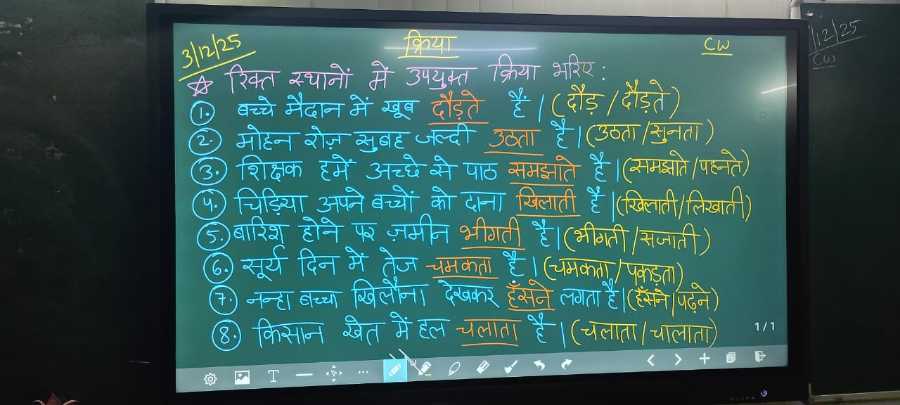 3/12/25
क्रिया
CW
☆ रिक्त स्थानों में उपयुक्त क्रिया भरिए :
1. बच्चे मैदान में खूब दौड़ते हैं । (दौड़ / दौड़ते)
2. मोहन रोज़ सुबह जल्दी उठता है । (उठता / सुनता)
3. शिक्षक हमें अच्छे से पाठ समझाते हैं । (समझाते / पहनते)
4. चिड़िया अपने बच्चों को दाना खिलाती है । (खिलाती / लिखाती)
5. बारिश होने पर ज़मीन भीगती है । (भीगती / सजाती)
6. सूर्य दिन में तेज चमकता है । (चमकता / पकड़ता)
7. नन्हा बच्चा खिलौना देखकर हँसने लगता है । (हँसने / पढ़ने)
8. किसान खेत में हल चलाता है । (चलाता / चालाता)
1/1
T
/12/25
CW